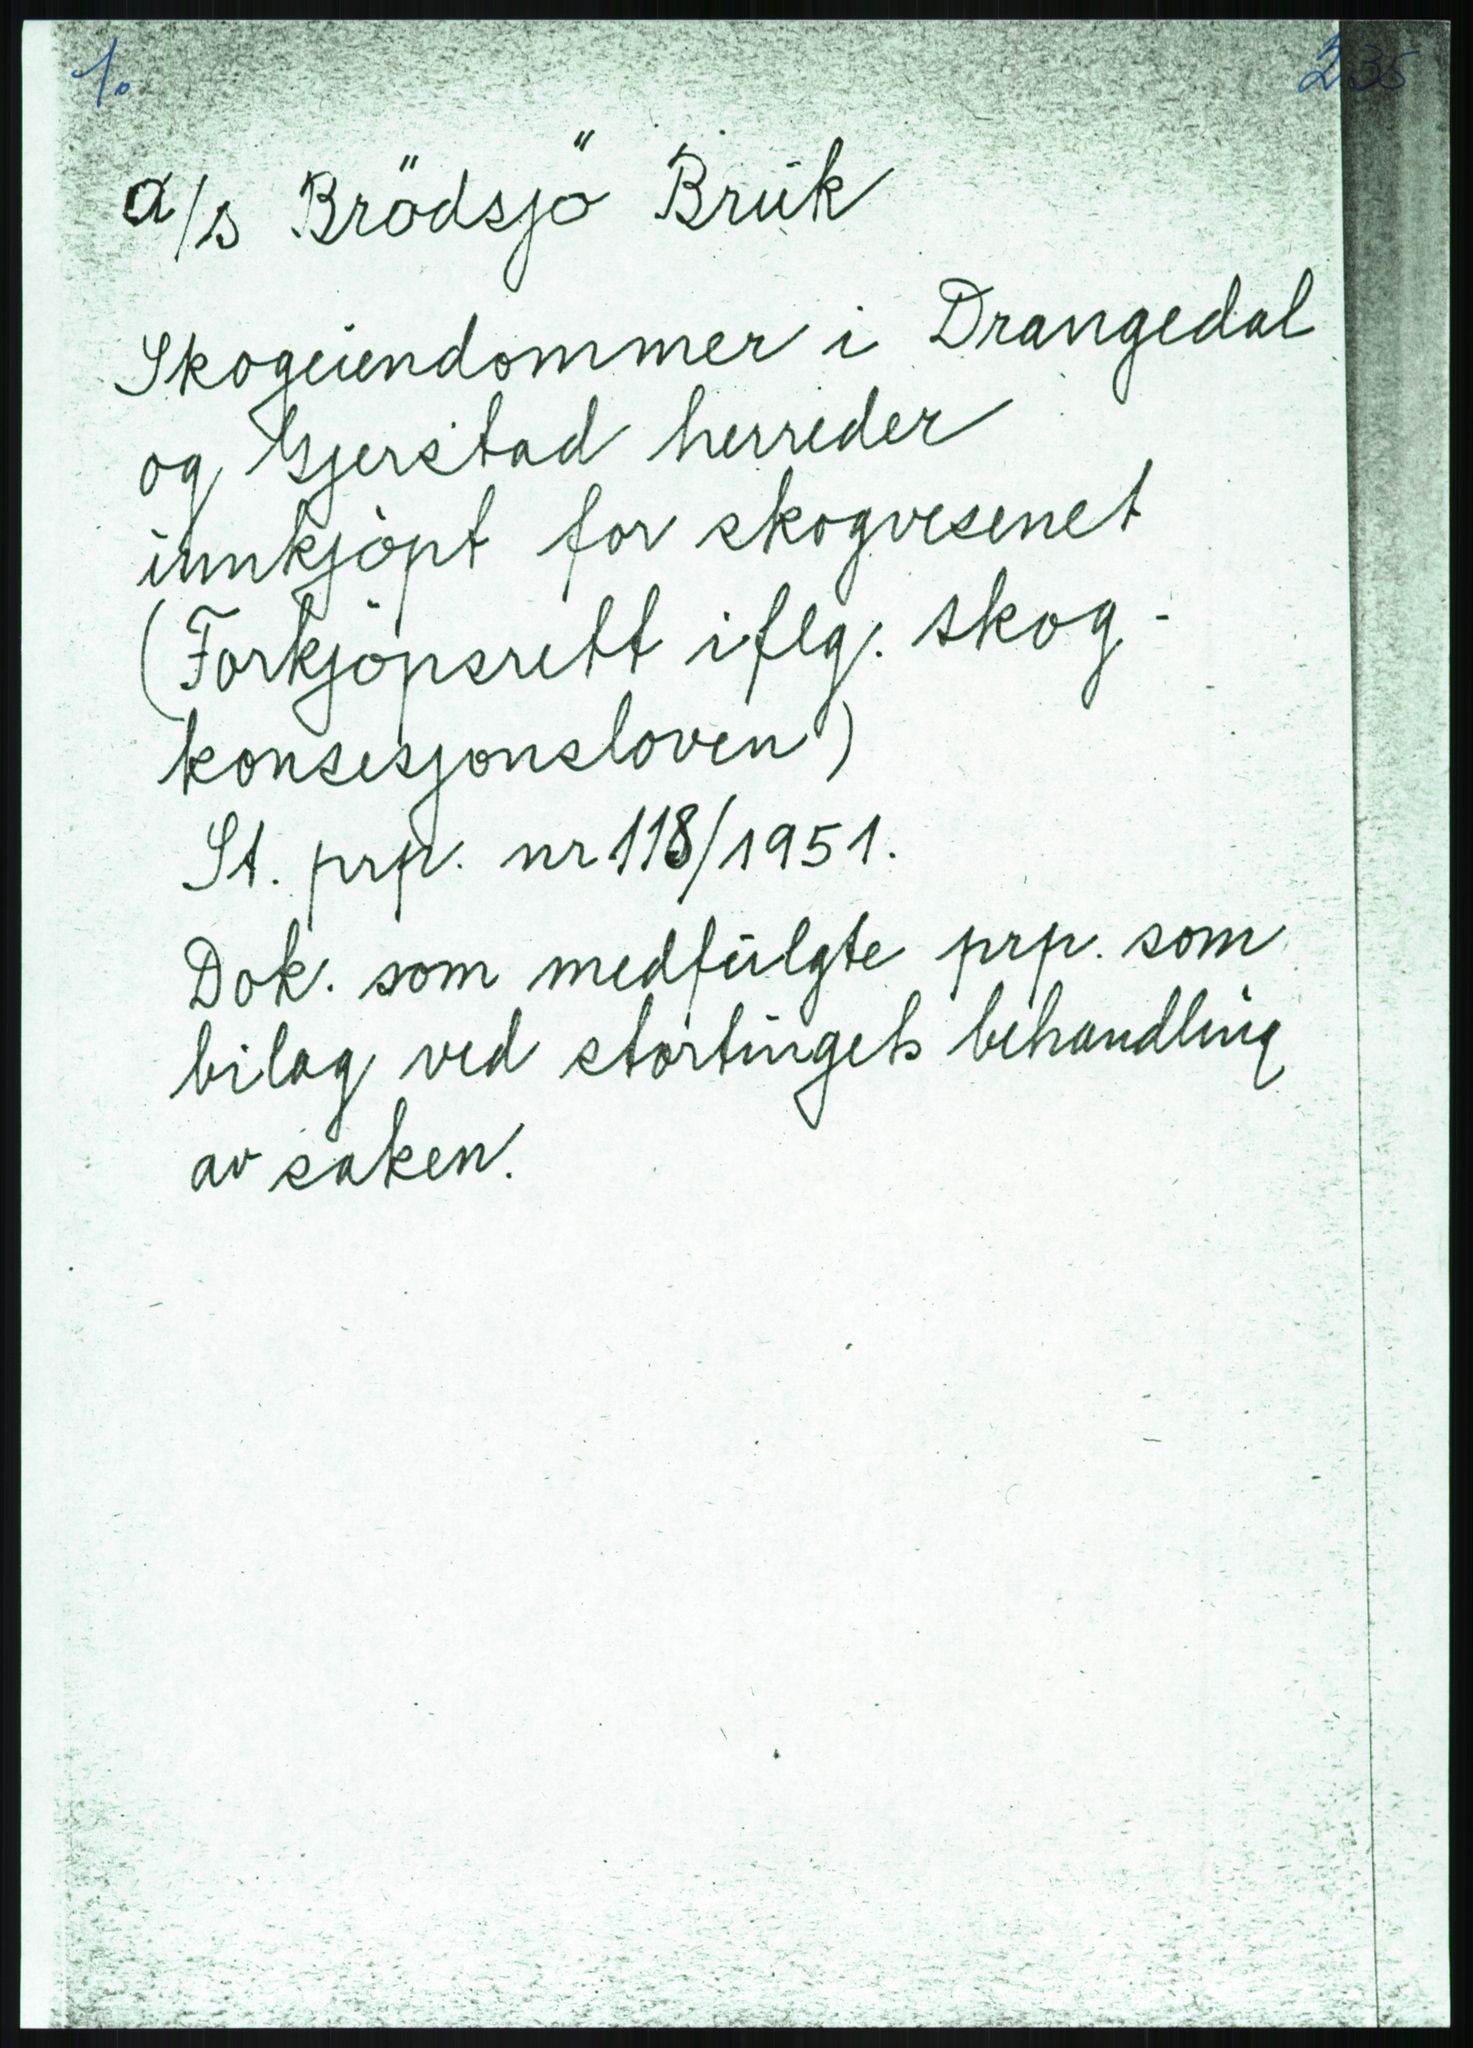 1.
235
a/s Brödsjö Bruk
Skogeiendommer i Drangedal
og Gjerstad herreder
innkjöpt for skogvesenet
(Forkjöpsrett iflg. skog-
konsesjonsloven)
St. prp. nr 118/1951.
Dok. som medfulgte prp. som
bilag ved stortingets behandling
av saken.